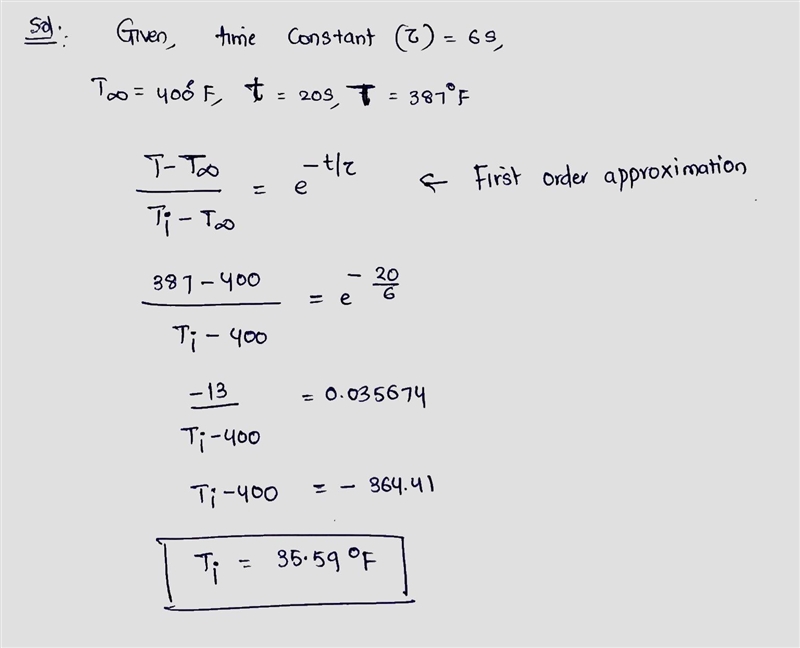 Sol:. Given, time constant (τ) = 6s,
T∞ = 400°F, t = 20s, T = 387°F
T - T∞ / Ti - T∞ = e^-t/τ ← First order approximation
387 - 400 / Ti - 400 = e^-20/6
-13 / Ti - 400 = 0.035674
Ti - 400 = - 364.41
Ti = 35.59 °F